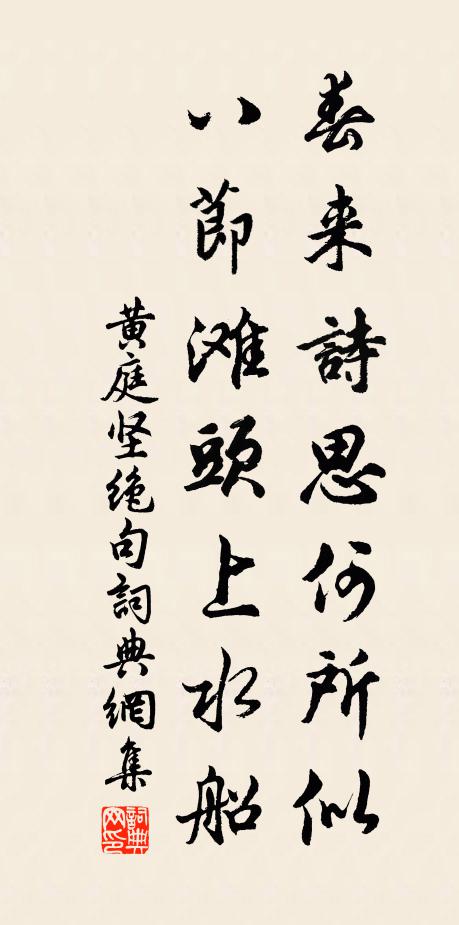 春来詩思何所似
八節滩頭上水船
黄庭坚绝句詞典網集
詞典网印